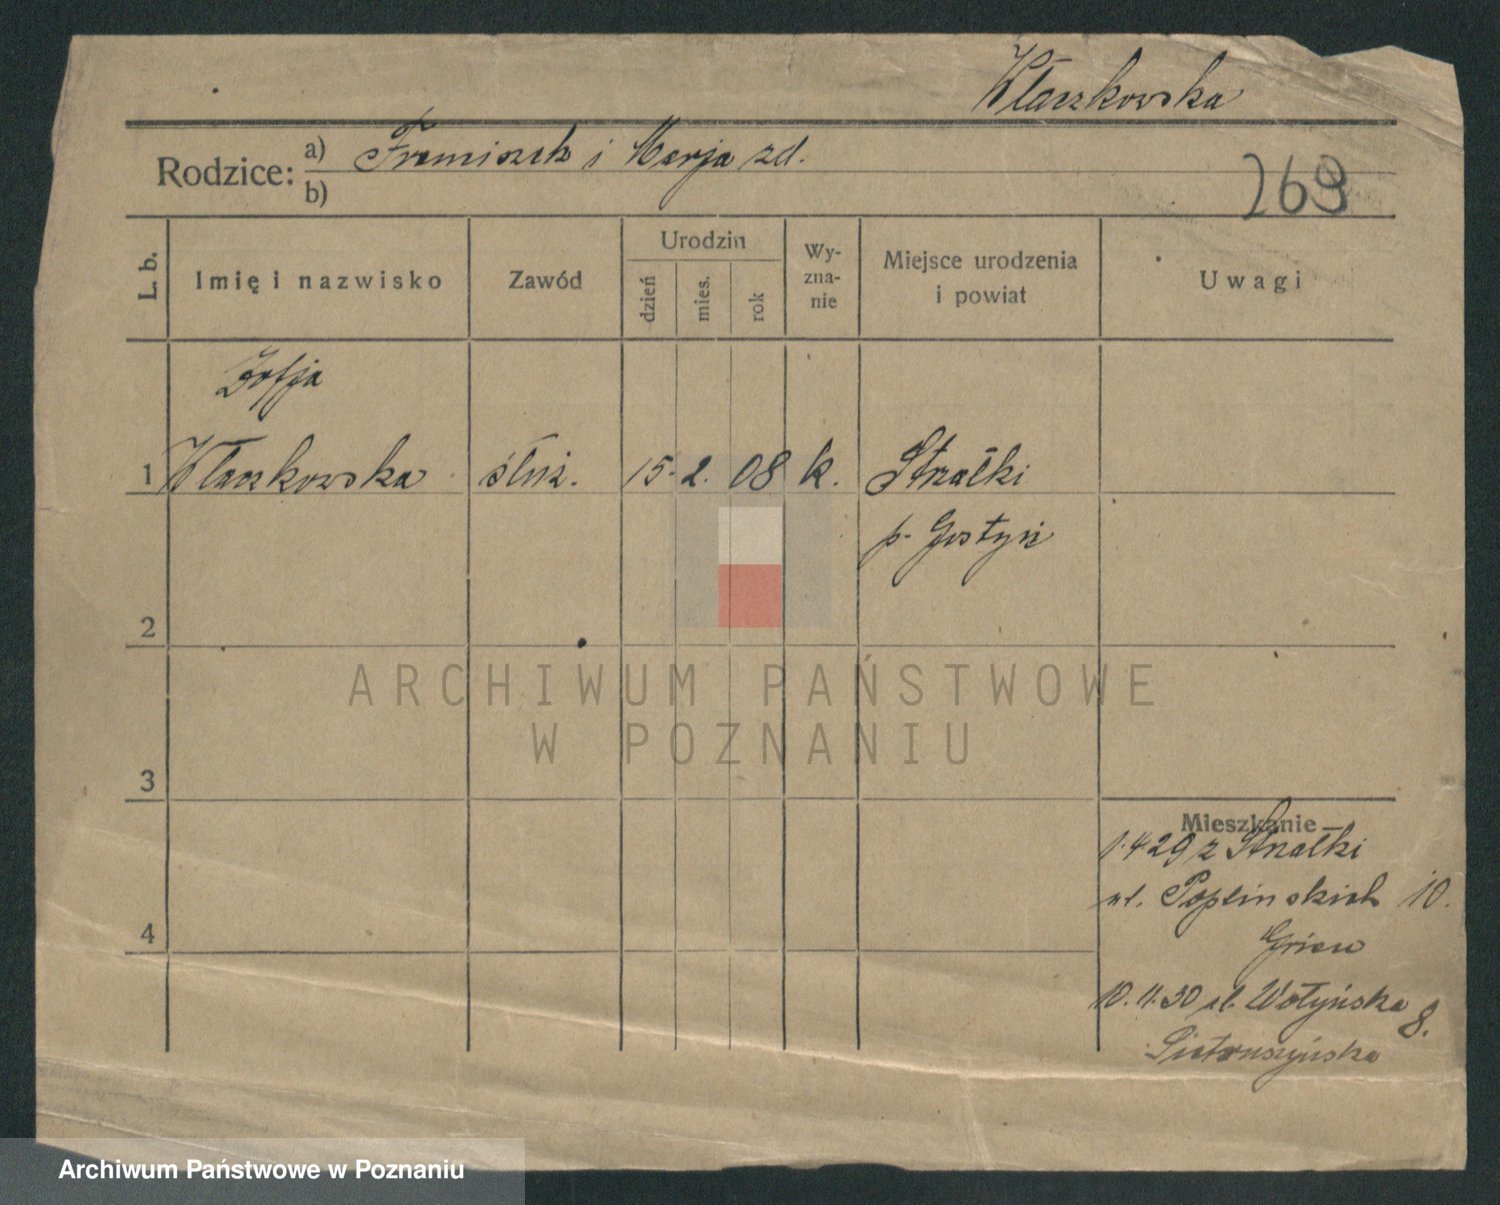 Właszkowska
Rodzice: a) Franciszek i Marja zd.
b)
269
L. b.
Imię i nazwisko
Zawód
Urodzin
dzień
mies.
rok
Wy-
zna-
nie
Miejsce urodzenia
i powiat
Uwagi
Zofja
1 Właszkowska służ. 15. 2. 08 k. Strzałki
p. Gostyń
2
3
4
Mieszkanie
1.4 29 z Strzałki
ul. Poplinskich 10.
10.11.30 ul. Wołyńska 8.
Pietruszyńska
ARCHIWUM PAŃSTWOWE
W POZNANIU
Archiwum Państwowe w Poznaniu